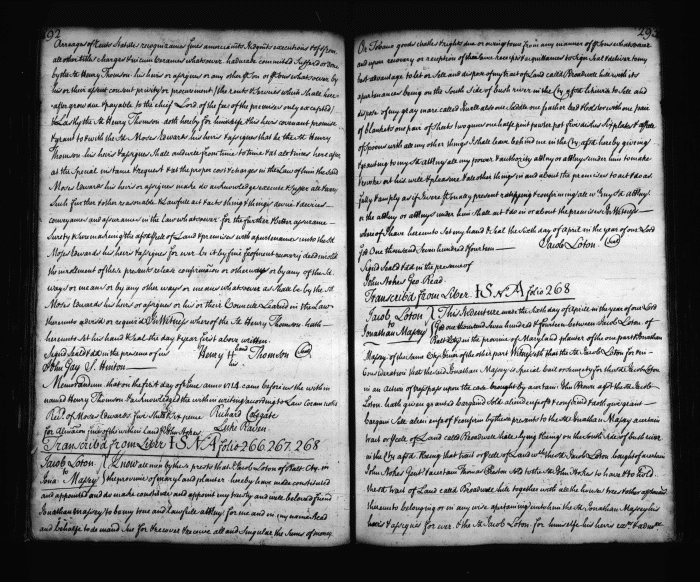 92
Arreages of Rents Statutes recognizances fines amercements Judgmts executions & of & from
all other titles charges & incumbrances whatsoever had made committed suffered or done
by the sd Henry Thomson his heirs or assignes or any other pson or psons whatsoever by
his or their assent consent privity or procurement (the rents & services which shall here
after grow due & payable to the chief Lord of the fee of the premises only excepted)
& Lastly the sd Henry Thomson doth hereby for himselfe & his heirs covenant promise
& grant to & with the sd Moses Edwards his heirs & assignes that he the sd Henry
Thomson his heirs & assignes shall and will from time to time & at all times here after
at the Special instance & request & at the proper cost & charges in the Law of him the said
Moses Edwards his heirs or assignes make do acknowledge execute & suffer all & any
such further & other reasonable & Lawfull act & acts thing & things device & devices
conveyance and assurance in the Law whatsoever for the further & better assurance
Surety & sure making the aforsd pcell of Land & premises with appurtenances unto the sd
Moses Edwards his heirs & assignes for ever be it by fine feofment recovery deed inroled
the inrolment of these presents release confirmation or otherways or by any of these
ways or means or by any other ways or means whatsoever as shall be by the sd
Moses Edwards his heirs or assignes or his or their Councile Learned in the Law
thereunto advised or required In Witness whereof the sd Henry Thomson hath
hereunto set his hand & seal the day & year first above written
Signed Sealed & dd in the presence of us Henry H Thomson (Seal)
hand his
John Gay S. Hinton
Memorandum that on the first day of June anno 1714 came before us the within
named Henry Thomson & acknowledged the within writing according to Law coram nobis
Recd of Moses Edwards five shills & six pence Richard Colegate
for alienacon fine of the within Land John Stokes Luke Raven
Transcribd from Liber I.S. No A folio 266, 267, 268
Jacob Loton Know all men by these presents that I Jacob Loton of Balt. Cty in
to
Jona Massey the province of maryland planter hereby have made constituted
and appointed and do make constitute and appoint my trusty and well beloved friend
Jonathan Massey to be my true and Lawfull attorny for me and in my name stead
and behalfe to demand Sue for & recover & receive all and singular the sums of money
293
Or Tobacco goods chatles & rights due or owing to me from any manner of psons whatsoever
and upon recovery or reception of the same receipts or quittances to sign seal & deliver to my
best advantage to let or sell and dispose of my tract of land called Broadwell hill with its
apurtenances being on the South side of bush river in the Cty aforsd likewise to sell and
dispose of my gray mare called Jewell also one saddle one feather bed & bolster with one pair
of blankets one pair of sheets two guns one half pint pewter pot five dishes six plates &
of spoons with all my other things I shall leave behind me in the Cty aforsd hereby giving
granting to my sd attorny all my power & authority attorny or attornys under him to make
& revoke at his will & pleasure & all other things in and about the premises to act & do as
fully & amply as if I were psonally present ratifying & confirming all wtever my sd attorny
or the attorny or attornys under him shall act & do in or about the premises In Witness
whereof I have hereunto set my hand & seal the Sixth day of april in the year of our Lord
God One thousand seven hundred & fourteen Jacob Loton (Seal)
Signed Seald & dd in the presence of
John Stokes Geo Read
Transcribd from Liber I.S. No A folio 268
Jacob Loton This Indenture made the Sixth day of aprile in the year of our Lord
to God one thousand seven hundred & fourteen between Jacob Loton of
Jonathan Massey Balt. Cty in the province of Maryland planter of the one part & Jonathan
Massey of the same Cty Gent of the other part Witnesseth that the sd Jacob Loton for in
Consideration that the said Jonathan Massey is Special bail or Security for the sd Jacob Loton
in an action of trespass upon the case brought by a certain John Brown agst the sd Jacob
Loton, hath given granted bargaind sold aliend enfeoft & confirmed & doth give grant
bargain sell alien enfeof & confirm by these presents to the sd Jonathan Massey a certain
tract or pcell of Land called Broadwell hill lying & being on the South side of bush river
in the Cty aforsd being that tract or pcell of Land wch the sd Jacob Loton bought of a certain
John Stokes Gent & a certain Thomas Preston sold to the sd John Stokes to have & to hold
the sd tract of Land called Broadwell hill together with all the houses trees & other aptenances
thereunto belonging or in any wise apertaining unto him the sd Jonathan Massey his
heirs & assignes for ever & the sd Jacob Loton for himselfe his heirs exrs & admrs